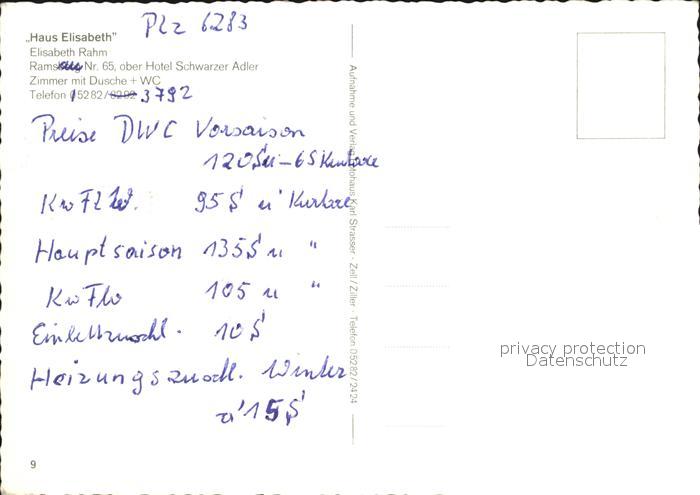 Plz 6283
„Haus Elisabeth"
Elisabeth Rahm
Nr. 65, ober Hotel Schwarzer Adler
Zimmer mit Dusche + WC
Telefon 05282/ 3792
Preise DWC Vorsaison
120S u 6S Kurtaxe
Kw Fl W. 95 S u Kurtaxe
Hauptsaison 135S u "
Kw Fl W 105 u "
Einbettzuschl. 10 S
Heizungszuschl. Winter
a' 15 S
Aufnahme und Verlag Fotohaus Karl Strasser · Zell/Ziller · Telefon 05282/2424
privacy protection
Datenschutz
9